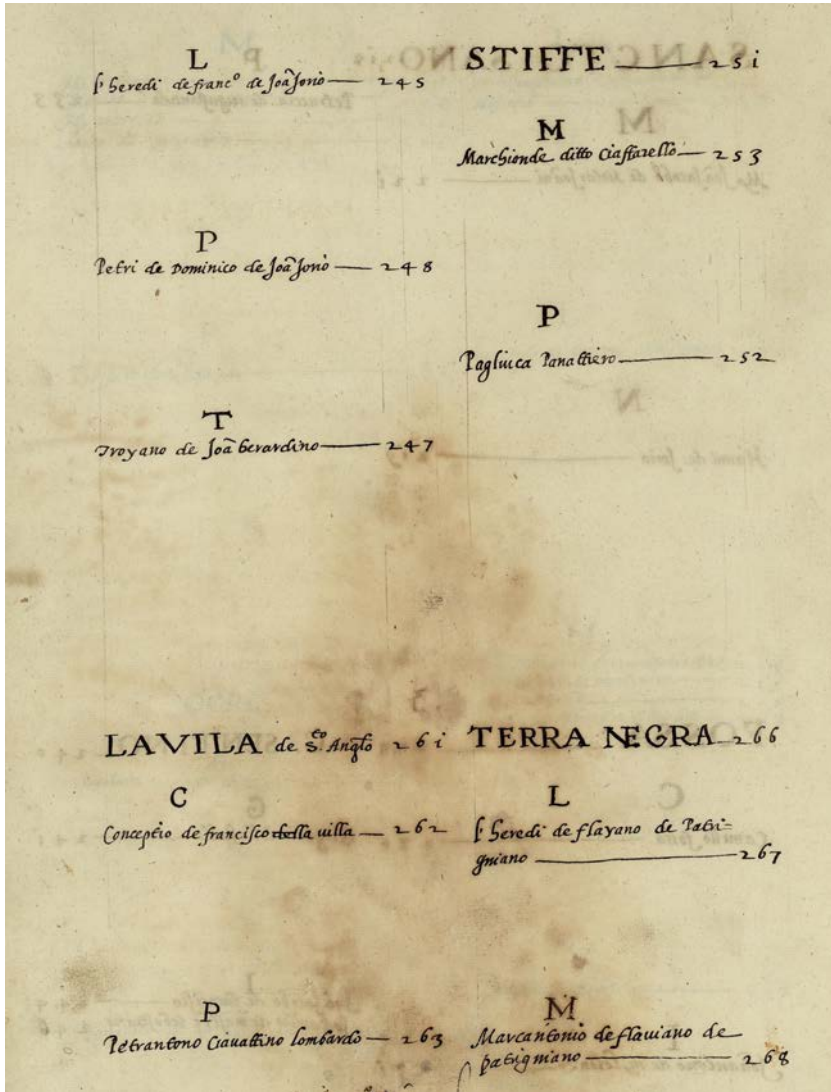 L
l'heredi de franc.º de Joã Jorio — 245
P
Petri de Dominico de Joã Jorio — 248
T
Troyano de Joã berardino — 247
STIFFE — 251
M
Marchionde ditto Ciaffarello — 253
P
Pagliuca Panattiero — 252
LA VILA de S.to Angło 261
C
Conceptio de francisco della villa — 262
P
Petrantono Ciavattino lombardo — 263
TERRA NEGRA — 266
L
l'heredi de flayano de Patri=
gniano — 267
M
Marcantonio de flaviano de
patrigniano — 268